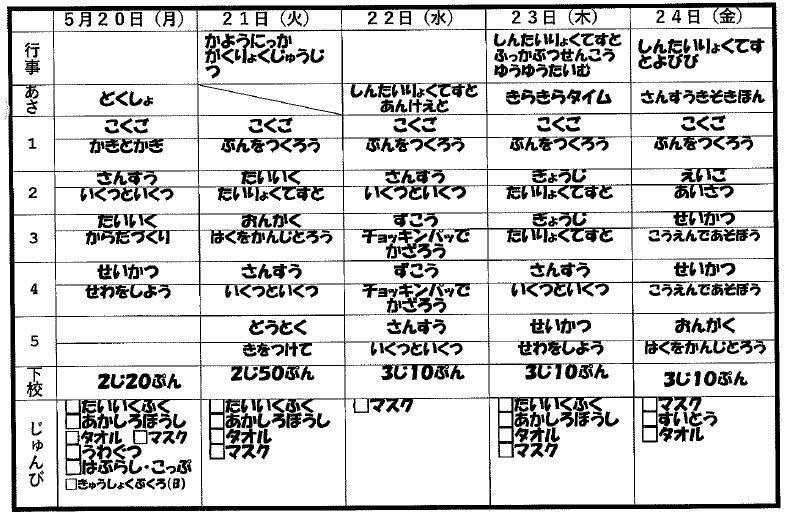 5月20日（月） 21日（火） 22日（水） 23日（木） 24日（金）
行事 かようにっか しんたいりょくてすと しんたいりょくてす
がくりょくじゅうじ ふっかぶつせんこう とよびび
つ ゆうゆうたいむ
あさ とくしょ しんたいりょくてすと きらきらタイム さんすうきそきほん
あんけえと
1 こくご こくご こくご こくご こくご
かきとかき ぶんをつくろう ぶんをつくろう ぶんをつくろう ぶんをつくろう
2 さんすう たいいく さんすう ぎょうじ えいご
いくつといくつ たいりょくてすと いくつといくつ たいりょくてすと あいさつ
3 たいいく おんがく ずこう ぎょうじ せいかつ
からだづくり はくをかんじとろう チョッキンパッで たいりょくてすと こうえんであそぼう
かざろう
4 せいかつ さんすう ずこう さんすう せいかつ
せわをしよう いくつといくつ チョッキンパッで いくつといくつ こうえんであそぼう
かざろう
5 どうとく さんすう せいかつ おんがく
きをつけて いくつといくつ せわをしよう はくをかんじとろう
下校 2じ20ぷん 2じ50ぷん 3じ10ぷん 3じ10ぷん 3じ10ぷん
じゅんび □たいいくふく □たいいくふく □マスク □たいいくふく □マスク
□あかしろぼうし □あかしろぼうし □あかしろぼうし □すいとう
□タオル □マスク □タオル □タオル □タオル
□うわぐつ □マスク □マスク
□はぶらし・こっぷ
□きゅうしょくぶくろ(B)